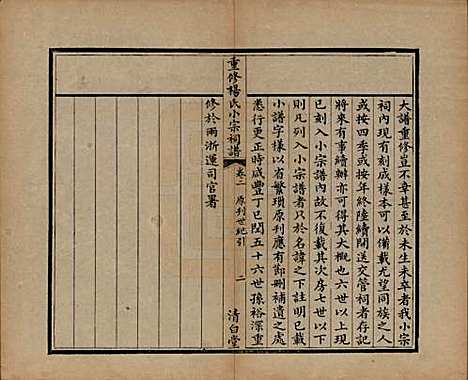 大譜重修豈不幸甚至於未生未卒者我小宗
祠內現有刻成樣本可以備載尤望同族之人
或按四季或按年終陸續開送交管祠者存記
將來有事續辦亦可得其大概也六世以上
已刻入小宗譜內故不復載其次房七世以下
則凡列入小宗譜者只於名諱之下註明已載
小譜字樣以省繁瑣原刊應有鄒刪補遺之處
悉行更正時咸豐丁巳閏五十六世孫裕深重
修於兩浙運司官署
重修楊氏小宗祠譜
卷二 原刊世紀引 二
清白堂